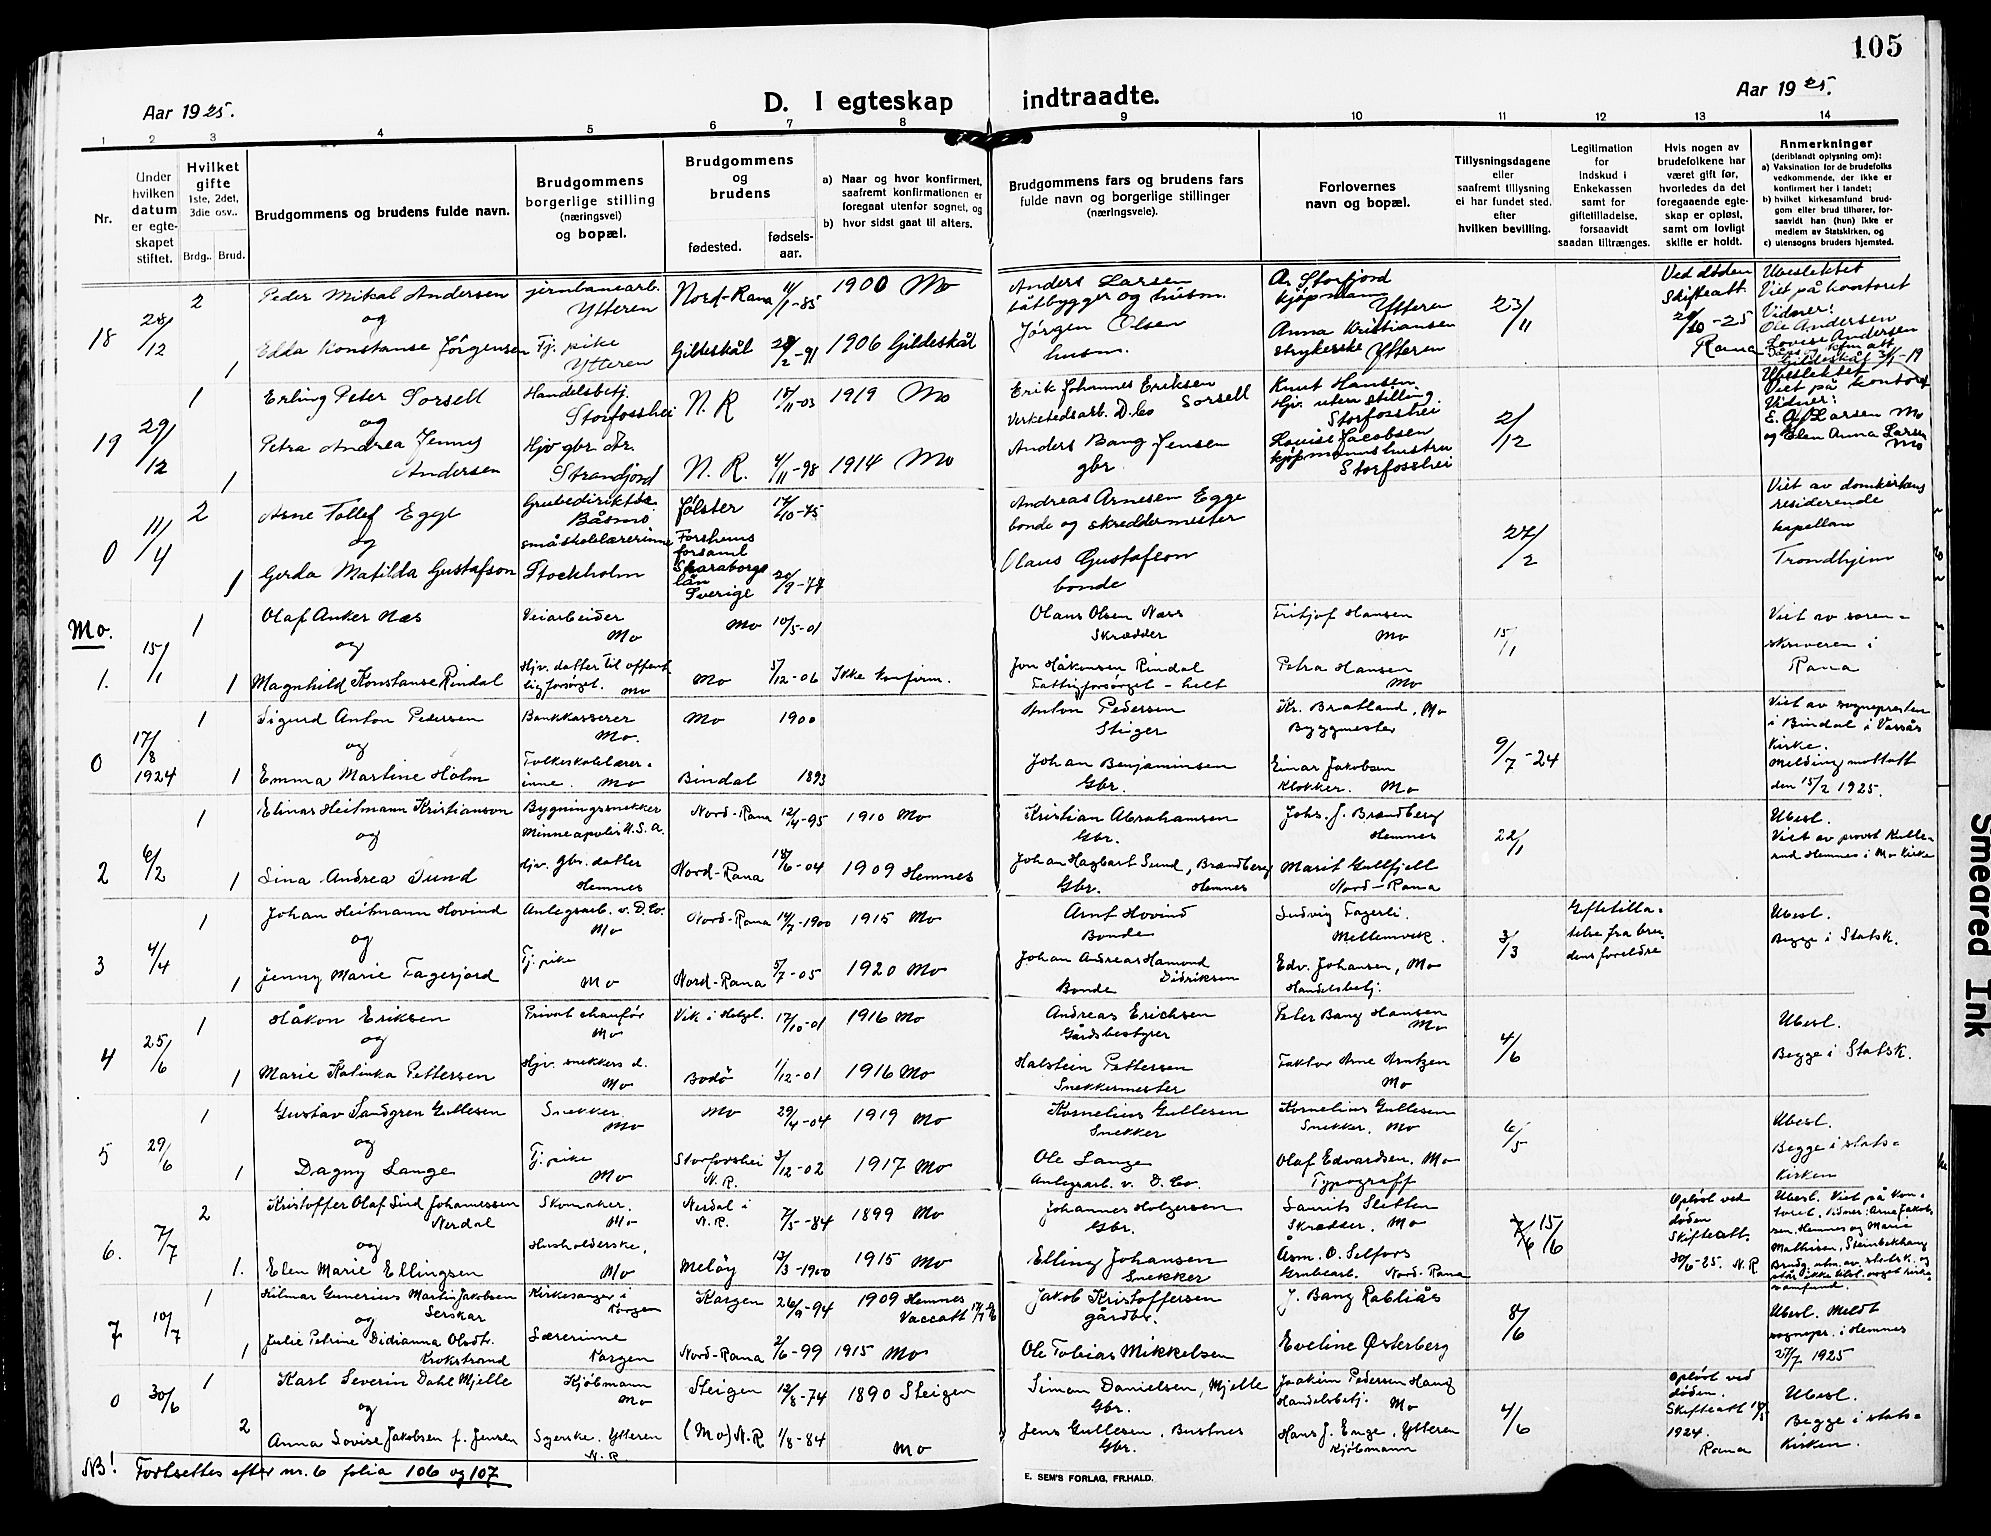 105
Aar 1925.
D. I egteskap indtraadte.
Aar 1925.
1 2 3 4 5 6 7 8 9 10 11 12 13 14
Nr.
Under hvilken datum er egteskapet stiftet.
Hvilket gifte 1ste, 2det, 3die osv..
Brdg.. Brud.
Brudgommens og brudens fulde navn.
Brudgommens borgerlige stilling (næringsvei) og bopæl.
Brudgommens og brudens
fødested.
fødselsaar.
a) Naar og hvor konfirmert, saafremt konfirmationen er foregaat utenfor sognet, og
b) hvor sidst gaat til alters.
Brudgommens fars og brudens fars fulde navn og borgerlige stillinger (næringsveie).
Forlovernes navn og bopæl.
Tillysningsdagene eller saafremt tillysning ei har fundet sted. efter hvilken bevilling.
Legitimation for Indskud i Enkekassen samt for giftetilladelse, forsaavidt saadan tiltrænges.
Hvis nogen av brudefolkene har været gift før, hvorledes da det foregaaende egteskap er opløst, samt om lovligt skifte er holdt.
Anmerkninger (deriblandt oplysning om):
a) Vaksination for de brudefolks vedkommende, der ikke er konfirmert her i landet;
b) hvilket kirkesamfund brudgom eller brud tilhører, forsaavidt han (hun) ikke er medlem av Statskirken, og
c) utensogns bruders hjemsted.
18 28/12 2 Peder Mikal Andersen jernbanearb. Ytteren Nord-Rana 11/1-85 1900 Mo
og
1 Edda Konstanse Jørgensen Tj. pike Ytteren Gildeskål 28/2-91 1906 Gildeskål
Anders Larsen båtbygger og husm.
Jørgen Olsen husm.
A. Storfjord kjøpmann Ytteren
Anna Kristiansen strykerske Ytteren
23/11
Ved døden Skifteatt. 29/10-25 Rana
Ubeslektet Viet på kontoret Vidner: Ole Andersen Lovise Andersen
Gildeskål
19 29/12 1 Erling Peter Sorsell Handelsbetj. Storfosshei N. R 18/11-03 1919 Mo
og
1 Petra Andrea Jenny Andersen Hjv gbr. dr. Strandjord N. R. 4/11-98 1914 Mo
Erik Johannes Eriksen Sorsell Verkstedsarb. D. Co
Anders Bang Jensen gbr.
Knut Hansen Hjv. uten stilling. Storfosshei
Louise Jacobsen kjøpmannshustru Storfosshei
2/12
Ubeslektet Viet på kontoret Vidner: E. Larsen Mo og Elen Anna Larsen Mo
0 11/4 2 Arne Tollef Egge Grubedirektør Båsmo Jølster 14/10-75
og
1 Gerda Matilda Gustafson småskolelærerinne Stockholm Forshems forsaml Skaraborgs län Sverige 20/9-77
Andreas Arnesen Egge bonde og skreddermester
Olaus Gustafson bonde
27/2
Viet av domkirkens residerende kapellan Trondhjem
Mo.
1. 15/1 1 Olaf Anker Næs Veiarbeider Mo Mo 10/5-01
og
1 Magnhild Konstanse Rindal Hjv. datter til offentlig forsørget. Mo Mo 5/12-06 Ikke konfirm.
Olaus Olsen Næss Skrædder
Jon Håkonsen Rindal Fattigforsørget - helt
Fritjof Hansen Mo
Petra Hansen Mo
15/1
Viet av sorenskriveren i Rana
0 17/8 1924 1 Sigurd Anton Pedersen Bankkasserer Mo. Mo 1900
og
1 Emma Martine Holm Folkeskolelærerinne. Mo Bindal 1893
Anton Pedersen Stiger
Johan Benjaminsen Gbr.
Kr. Bratland, Mo Byggmester
Einar Jakobsen Klokker. Mo
9/7-24
Viet av sogneprsten i Bindal i Vassås Kirke. Melding mottatt den 15/2 1925.
2 6/2 1 Elinar Heitmann Kristianson Bygningssnekker Minneapolis U.S.A. Nord-Rana 12/4-95 1910 Mo
og
1 Lina Andrea Sund Hjv. gbr. datter Hemnes Nord-Rana 18/6-04 1909 Hemnes
Kristian Abrahamsen Gbr.
Johan Hagbart Sund, Brændberg Gbr. Hemnes
Johs. J. Brændberg Hemnes
Marit Gullfjell Nord-Rana
22/1
Ubesl. Viet av provst Kullerud Hemnes i Mo Kirke
3 4/4 1 Johan Heitmann Hovind Anlegsarb. v. D. Co. Mo Nord-Rana 14/7-1900 1915 Mo
og
1 Jenny Marie Fagerjord Tj. pike Mo Nord-Rana 5/7-05 1920 Mo
Arnt Hovind Bonde
Johan Andreas Hamond Didriksen Bonde
Ludvig Fagerli. Mellemvik.
Edv. Johansen, Mo Handelsbetj.
3/3
Giftetilladelse fra brudens foreldre
Ubesl. Begge i Statsk.
4 25/6 1 Håkon Eriksen Privat chaufør Mo Vik i Helgel. 17/10-01 1916 Mo
og
1 Marie Katinka Pettersen Hjv. snekkers d. Mo Bodø 1/12-01 1916 Mo
Andreas Erichsen Gårdsbestyrer
Halstein Pettersen Snekkermester
Peter Bang Hansen Mo
Faktor Arne Arntzen Mo
4/6
Ubesl. Begge i Statsk.
5 29/6 1 Gustav Sandgren Gullesen Snekker. Mo Mo 29/4-04 1919 Mo
og
1 Dagny Lange Tj. pike Mo Storfosshei N. R. 3/12-02 1917 Mo
Kornelius Gullesen Snekker
Ole Lange Anlegsarb. v. D. Co.
Kornelius Gullesen Snekker. Mo
Olaf Edvardsen. Mo Typograff
6/5
Ubesl. Begge i statskirken
6. 7/7 2 Kristoffer Olaf Sind Johannessen Nerdal Skomaker. Mo Nerdal i N. R. 7/5-84 1899 Mo
og
1. Elen Marie Ellingsen Husholderske. Mo Meløy 13/3-1900 1915 Mo
Johannes Holgersen Gbr.
Elling Johansen Snekker
Laurits Sletten Skrædder. Mo
Åsm. O. Selfors Grubearb. Nord-Rana
7/6 15/6
Opløst ved døden Skifteatt. 30/6-25. N. R
Ubesl. Viet på kontoret. Vidner: Arne Jakobssen, Hemnes og Marie Mathisen, Steinbekhaug
7 10/7 1 Hilmar Gunerius Martin Jakobsen Serskar Kirkesanger i Korgen Korgen 26/9-94 1909 Hemnes Vaccatt
og
1 Julie Petrine Didianna Olsdt. Krokstrand Lærerinne Korgen Nord-Rana 2/6-99 1915 Mo
Jakob Kristoffersen gårdbr.
Ole Tobias Mikkelsen
J. Bang Rabliås
Eveline Østerberg
8/6
Ubesl. Meldt sognepr. i Hemnes 27/7 1925
0 30/6 1 Karl Severin Dahl Mjelle Kjøbmann Mo Steigen 12/8-74 1890 Steigen
og
2 Anna Lovise Jakobsen f. Jensen Syerske. Ytteren N. R. (Mo) N. R 1/8-84 Mo
Simon Danielsen, Mjelle Gbr.
Jens Gullesen, Bustnes Gbr.
Joakim Pedersen Haug Handelsbetj. Mo
Hans J. Enge, Ytteren Kjøbmann
4/6
Opløst ved døden. Skifteatt 1924. Rana
Ubesl. Begge i statskirken.
NB! Fortsettes efter nr. 6 folia 106 og 107
E. SEM'S FORLAG, FR.HALD.
Smeared Ink